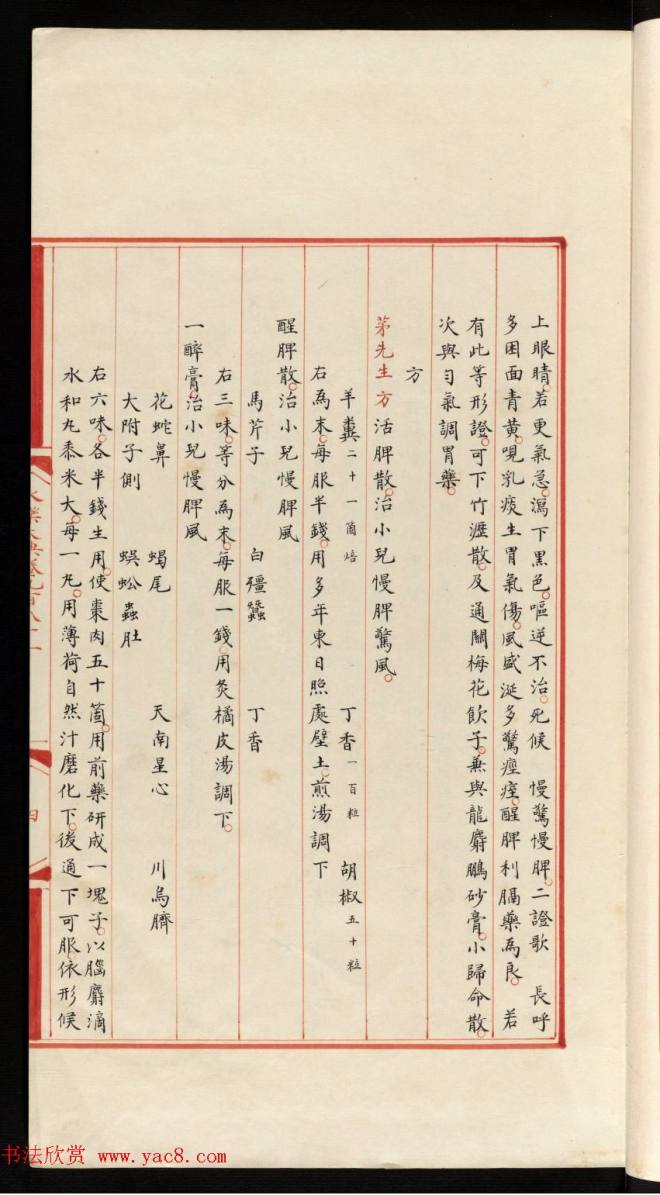 上眼睛。若更氣急。瀉下黑色。嘔逆不治。死候　慢驚慢脾。二證歌　長呼
多困面青黃。哯乳痰生胃氣傷。風盛涎多驚痙痓。醒脾利膈藥為良。　若
有此等形證。可下竹瀝散。及通關梅花飲子。兼與龍麝鵬砂膏。小歸命散。
次與勻氣調胃藥。
方
茅先生方活脾散。治小兒慢脾驚風。
羊糞二十一箇焙　丁香一百粒　胡椒五十粒
右為末。每服半錢。用多年東日照處壁土。煎湯調下
醒脾散。治小兒慢脾風
馬芹子　白殭蠶　丁香
右三味。等分為末。每服一錢。用炙橘皮湯調下。
一醉膏。治小兒慢脾風
花蛇鼻　蝎尾　天南星心　川烏臍
大附子側　蜈蚣蟲肚
右六味。各半錢生用。使棗肉五十箇。用前藥研成一塊子。以腦麝滴
水和丸黍米大。每一丸。用薄荷自然汁磨化下。後通下可服。依形候
永樂大典卷九百八十一
四
书法欣赏 www.yac8.com